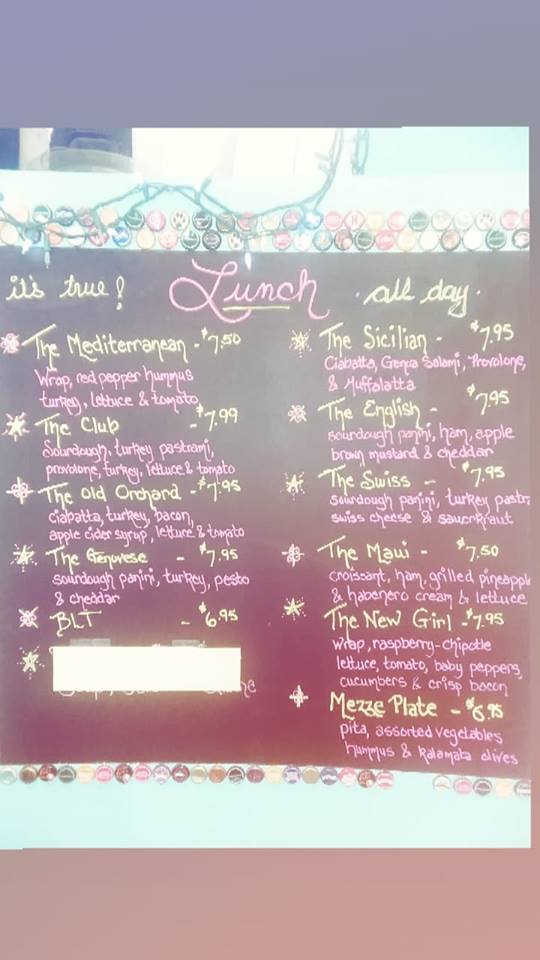 it's true! Lunch · all day ·
The Mediterranean - $7.50
Wrap, red pepper hummus
turkey, lettuce & tomato
The Club - $7.99
Sourdough, turkey pastrami,
provolone, turkey, lettuce & tomato
The Old Orchard - $7.95
ciabatta, turkey, bacon,
apple cider syrup, lettuce & tomato
The Genovese - $7.95
sourdough panini, turkey, pesto
& cheddar
BLT - $6.95
The Sicilian - $7.95
Ciabatta, Genoa Salami, Provolone,
& Muffalatta
The English - $7.95
sourdough panini, ham, apple
brown mustard & cheddar
The Swiss - $7.95
sourdough panini, turkey pastr
swiss cheese & sauerkraut
The Maui - $7.50
croissant, ham, grilled pineappl
& habenero cream & lettuce
The New Girl - $7.95
wrap, raspberry-chipotle
lettuce, tomato, baby peppers,
cucumbers & crisp bacon
Mezze Plate - $6.95
pita, assorted vegetables
hummus & kalamata olives